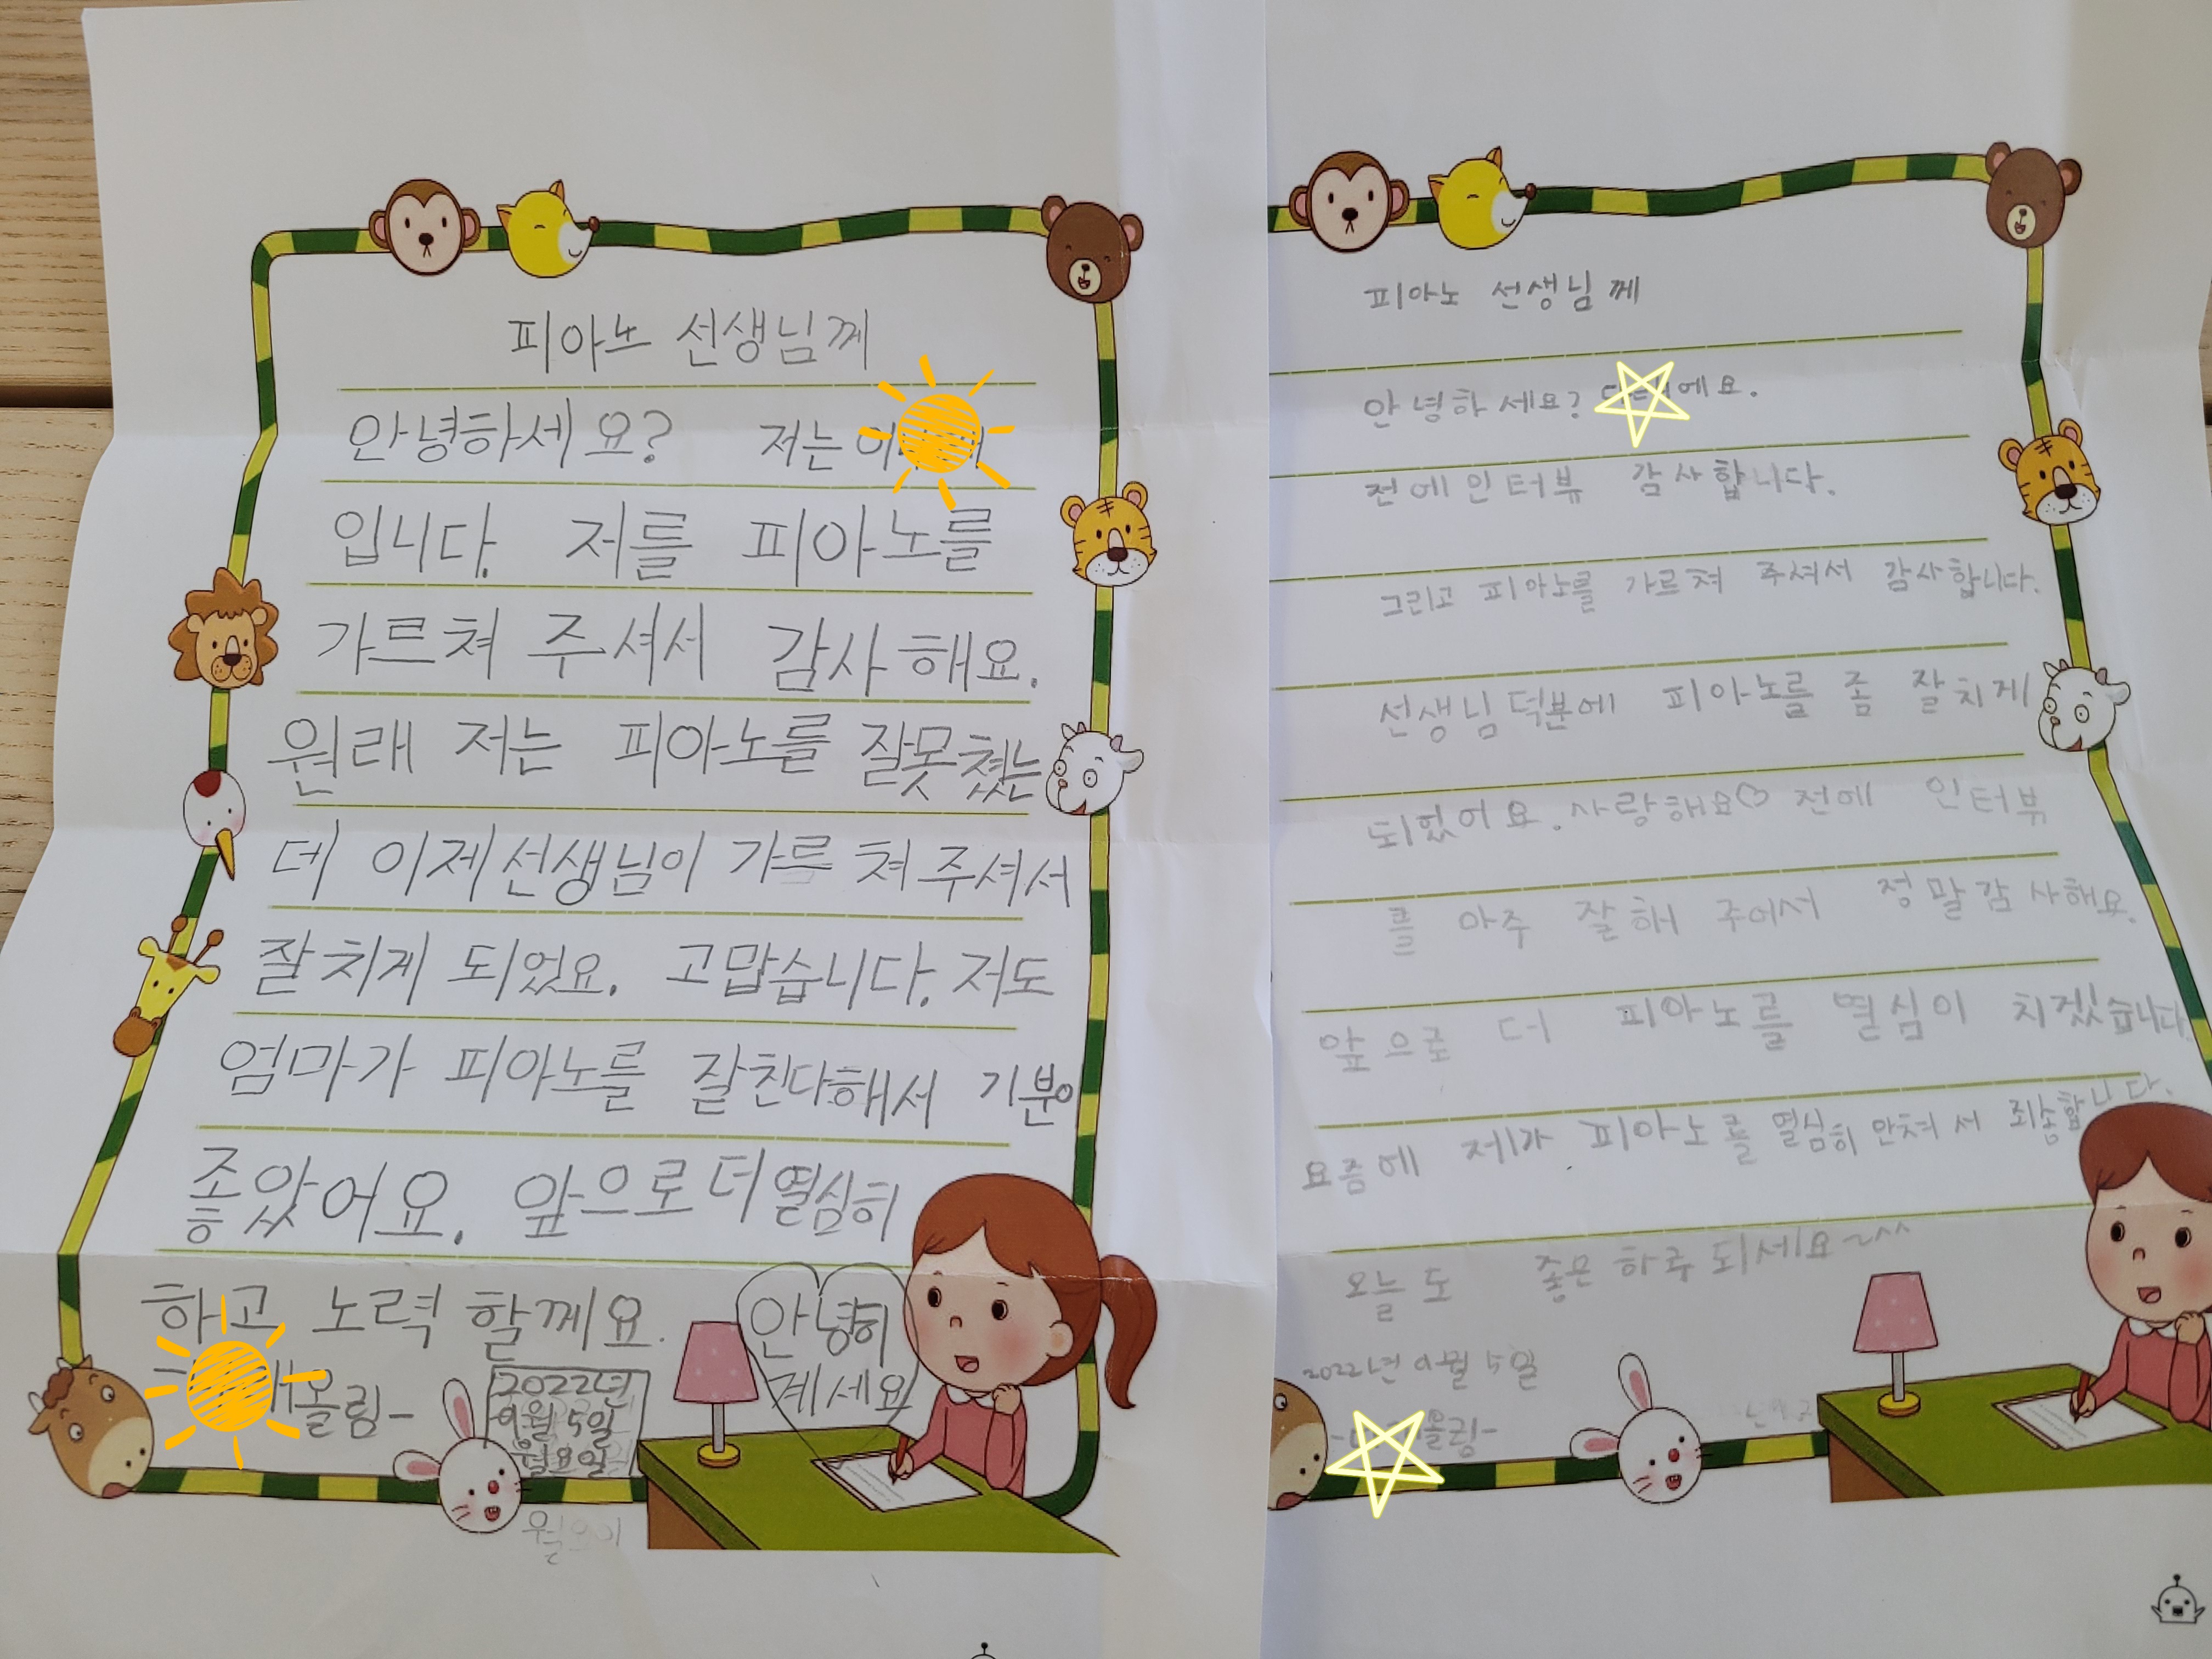 피아노 선생님께
안녕하세요? 저는
입니다. 저를 피아노를
가르쳐 주셔서 감사해요.
원래 저는 피아노를 잘못쳤는
데 이제 선생님이 가르쳐 주셔서
잘 치게 되었요. 고맙습니다. 저도
엄마가 피아노를 잘친다해서 기분이
좋았어요. 앞으로 더 열심히
하고 노력 할께요.
안녕히
계세요
올림-
2022년
9월 5일
월요일
피아노 선생님께
안녕하세요? 에요.
전에 인터뷰 감사합니다.
그리고 피아노를 가르쳐 주셔서 감사합니다.
선생님 덕분에 피아노를 좀 잘치게
되었어요. 사랑해요♡ 전에 인터뷰
를 아주 잘해 주어서 정말감사해요.
앞으로 더 피아노를 열심이 치겠습니다
요즘에 제가 피아노를 열심히 안쳐서 죄송합니다.
오늘도 좋은 하루 되세요~^^
2022년 9월 5일
올림-